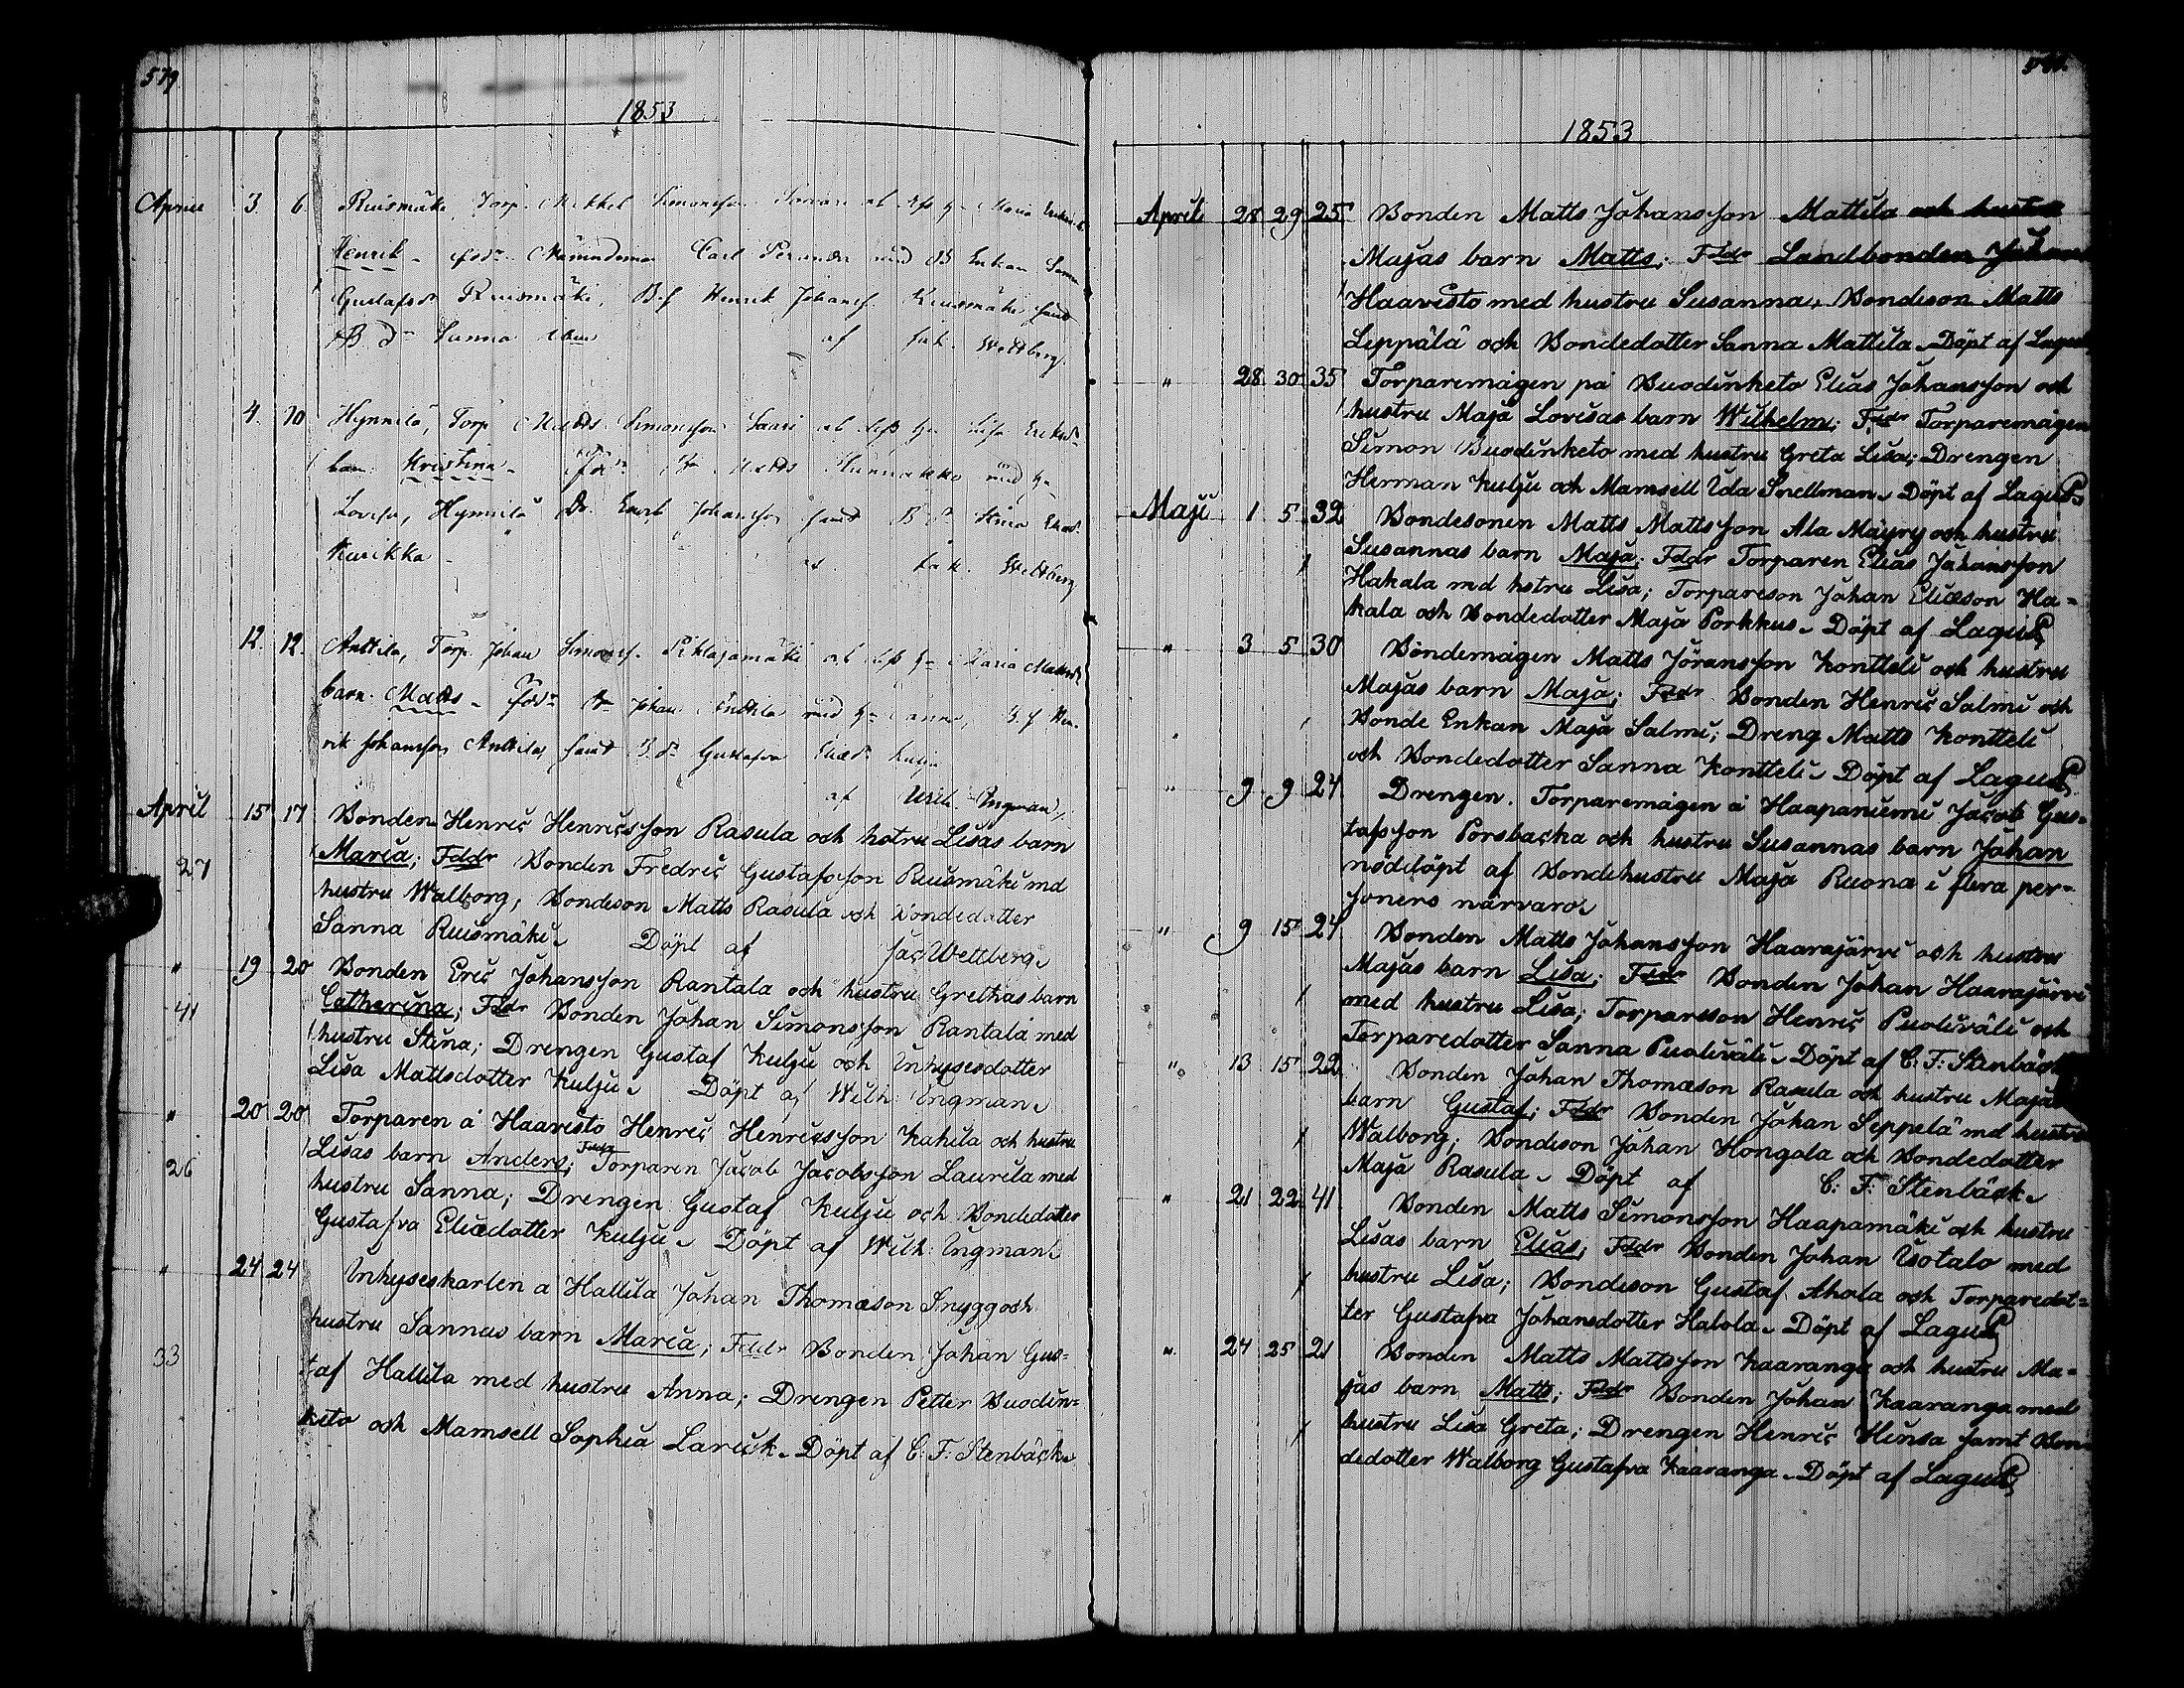 579
1853
April 3. 6. Ruismäki, Torp. Mikkel Simonsson Savari ab dess h. Maria
Henrik - Carl med Enkan
Gustafsdr Ruismäki, Henrik Johanss. Ruismäki samt
Sanna af Wettberg
4. 10 Hynnilä, Torp Matts Simonsson Saari ab dess h. Lisa Eriksdr
barn Kristina - Matts Hunnakko med h.
Lovisa, Hynnilä Johansson samt Stina
Kurikka - af Wettberg
12. 12. Anttila, Torp. Johan Simonss. Pihlajamäki ab dess h. Maria Mattsdr
barn. Matts - Johan Anttila med h. Anna, Hen-
rik Johansson Anttila, samt Gustafva
af Wilh. Ingman,
April 15 17 Bonden Henric Henricsson Rasula och hstru Lisas barn
27 Maria; Fddr Bonden Fredric Gustafsson Ruismäki md
hustru Walborg, Bondeson Matts Rasula och Bondedotter
Sanna Ruismäki. Döpt af Jac Wettberg.
" 19 20 Bonden Eric Johansson Rantala och hustru Grethas barn
41 Catharina; Fddr Bonden Johan Simonsson Rantala med
hustru Stina; Drengen Gustaf Kulju och Inhysesdotter
Lisa Mattsdotter Kulju. Döpt af Wilh: Ingman.
" 20 20 Torparen å Haavisto Henric Henricsson Kahila och hustru
26 Lisas barn Anders; Fddr Torparen Jacob Jacobsson Laurila med
hustru Sanna; Drengen Gustaf Kulju och Bondedotter
Gustafva Eliædotter Kulju. Döpt af Wilh: Ingman.
" 24 24 Inhyseskarlen å Hallila Johan Thomæson Snygg och
hustru Sannas barn Maria; Fddr Bonden Johan Gus-
33 taf Hallila med hustru Anna; Drengen Petter Buodin-
keto och Mamsell Sophia Laruck. Döpt af C: F: Stenbäck.
1853
April 28 29 25 Bonden Matts Johansson Mattila och hustru
Majas barn Matts; Fddr Landbonden Johan
Haavisto med hustru Susanna, Bondeson Matts
Leppälä och Bondedotter Sanna Mattila. Döpt af Lagus
" 28 30 35 Torparemågen på Buodinketo Elias Johansson och
hustru Maja Lovisas barn Wilhelm; Fddr Torparemågen
Simon Buodinketo med hustru Greta Lisa; Drengen
Herman Kulju och Mamsell Ida Snellman. Döpt af Lagus
Maji 1 5 32 Bondesonen Matts Mattsson Ala Mäyry och hustru
Susannas barn Maja; Fddr Torparen Elias Johansson
Hakala md hstru Lisa; Torpareson Johan Eliæson Ha-
kala och Bondedotter Maja Porkkus. Döpt af Lagus
" 3 5 30 Bondemågen Matts Jöransson Kontteli och hustru
Majas barn Maja; Fddr Bonden Henric Salmi och
Bonde Enkan Maja Salmi; Dreng Matts Kontteli
och Bondedotter Sanna Kontteli. Döpt af Lagus
" 9 9 24 Drengen. Torparemågen å Haapaniemi Jacob Gus-
tafsson Porsbacka och hustru Susannas barn Johan
nöddöpt af Bondehustru Maja Ruona i flera per-
soners närvaro.
" 9 15 24 Bonden Matts Johansson Haarajärvi och hustru
Majas barn Lisa; Fddr Bonden Johan Haarajärvi
med hustru Lisa; Torpareson Henric Puolivali och
Torparedotter Sanna Puolivali. Döpt af C: F: Stenbäck
" 13 15 22 Bonden Johan Thomæson Rasula och hustru Majas
barn Gustaf; Fddr Bonden Johan Seppelä md hustru
Walborg; Bondeson Johan Hongola och Bondedotter
Maja Rasula. Döpt af C: F: Stenbäck.
" 21 22 41 Bonden Matts Simonsson Haapamäki och hustru
Lisas barn Elias; Fddr Bonden Johan Isotalo med
hustru Lisa; Bondeson Gustaf Ahola och Torparedot-
ter Gustafva Johansdotter Halola. Döpt af Lagus
" 24 25 21 Bonden Matts Mattsson Kaaranga och hustru Ma-
jas barn Matts; Fddr Bonden Johan Kaaranga med
hustru Lisa Greta; Drengen Henric Hinsa samt Bon-
dedotter Walborg Gustafva Kaaranga. Döpt af Lagus